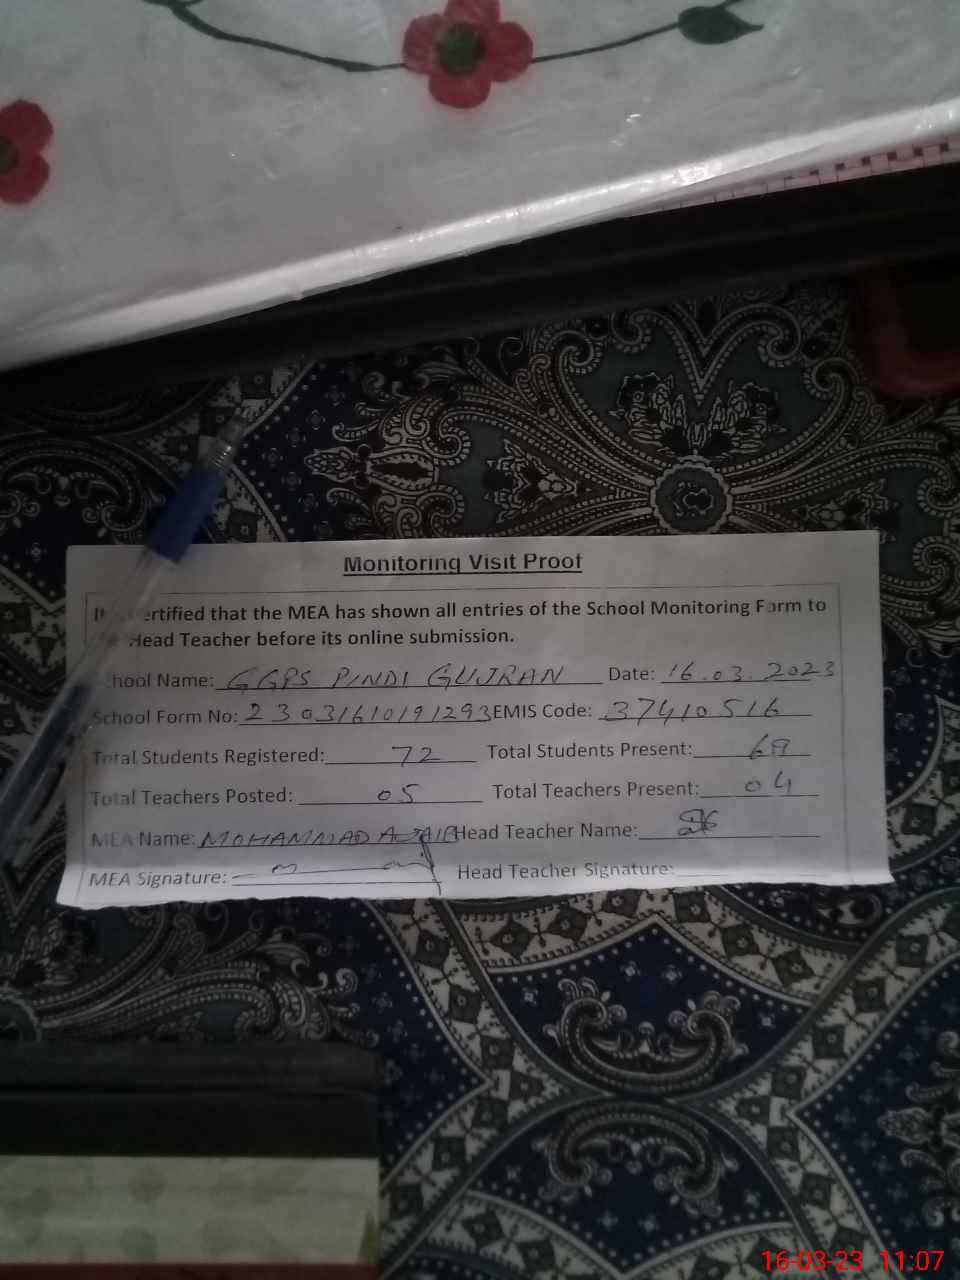 Monitoring Visit Proof
It ertified that the MEA has shown all entries of the School Monitoring Form to
Head Teacher before its online submission.
School Name: GGPS PINDI GUJRAN Date: 16.03.2023
School Form No: 23031610191293 EMIS Code: 37410516
Total Students Registered: 72 Total Students Present: 69
Total Teachers Posted: 05 Total Teachers Present: 04
MEA Name: MOHAMMAD Head Teacher Name:
MEA Signature: Head Teacher Signature:
16-03-23 11:07